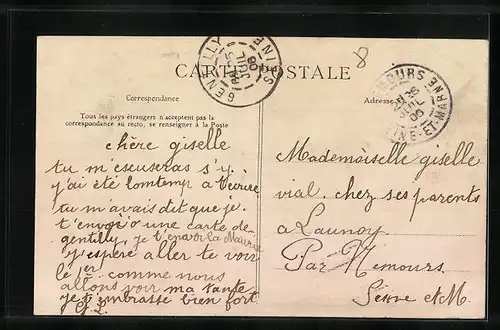 CARTE POSTALE
GENTILLY
SEINE
25
JUIL
06
8
NEMOURS
26
06
SEINE-ET-MARNE
Correspondance
Adresse
Tous les pays étrangers n'acceptent pas la
correspondance au recto, se renseigner à la Poste
chère giselle
tu m'escuseras s'y
j'ai été lomtemp a
tu m'avais dit que je
t'envoé une carte de
gentilly, je t'envoi la Mairie
j'espère aller te voir
le 1er comme nous
allons voir ma tante
je t'embrasse bien fort
Mademoiselle giselle
vial. chez ses parents
a Launoy
Par Nemours
Seine et M.